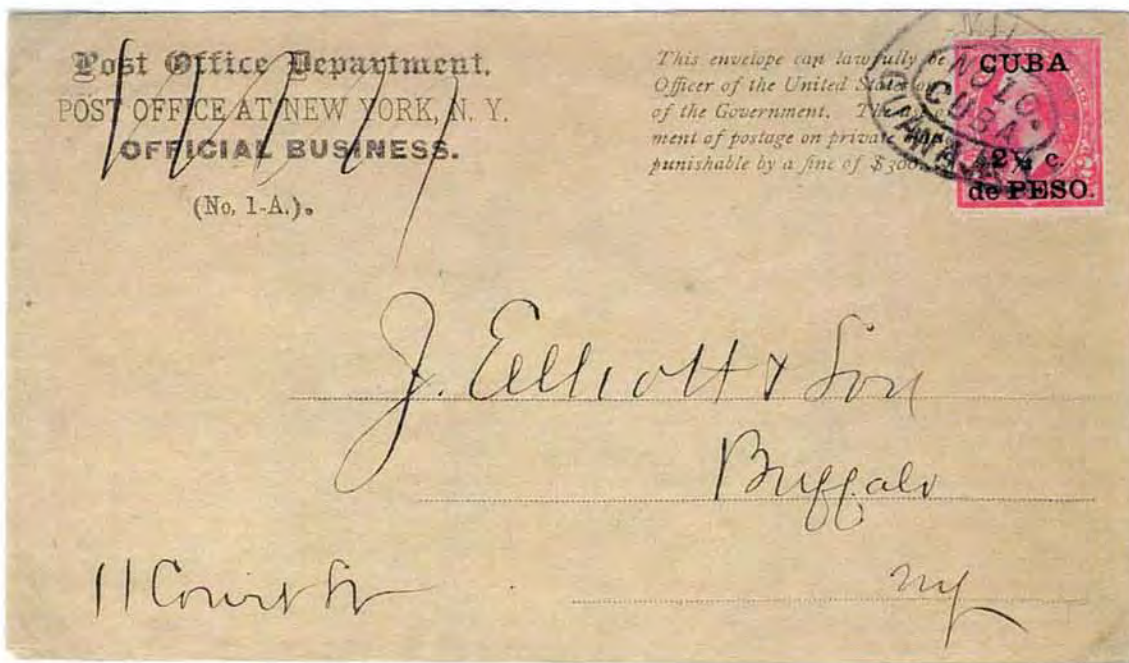 Post Office Department.
POST OFFICE AT NEW YORK, N. Y.
OFFICIAL BUSINESS.
(No. 1-A.).
This envelope can lawfully be
Officer of the United States
of the Government. The
ment of postage on private
punishable by a fine of $300.
CUBA
2½ c.
de PESO.
No 10.
CUBA
J. Elliott & Son
Buffalo
NY
11 Court St